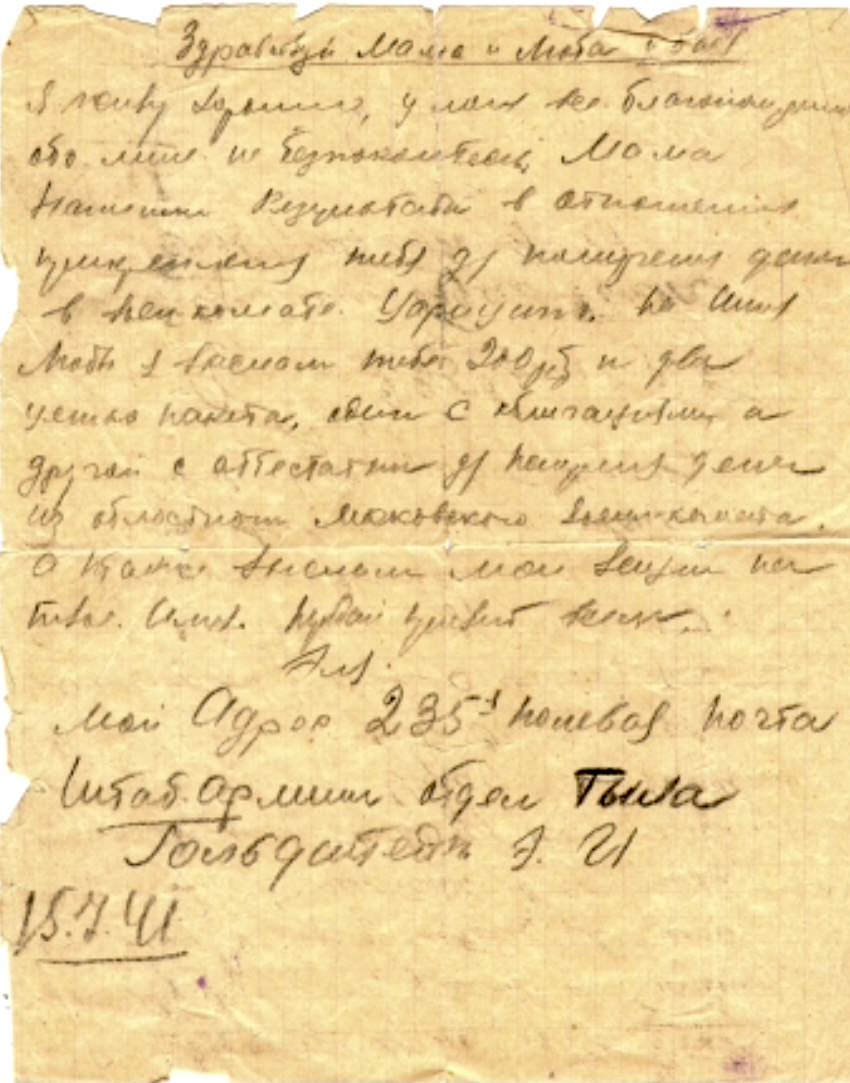 Здравствуй Мама и Люба
Я живу хорошо, у меня все благополучно
обо мне не безпокойтесь, Мама
Напиши Результаты в отношении
прикрепления тебя для получения денег
в военкомате. на имя
Любы я выслал тебе 200 руб и два
пакета, один с облигациями а
другой с аттестатом для получения денег
из областного Московского Военкомата.
а также выслал мои вещи на
твое имя. привет всем.
Мой Адрес 235я полевая почта
Штаб армии отдел Тыла
Гольдштейн А. И
15.7.41